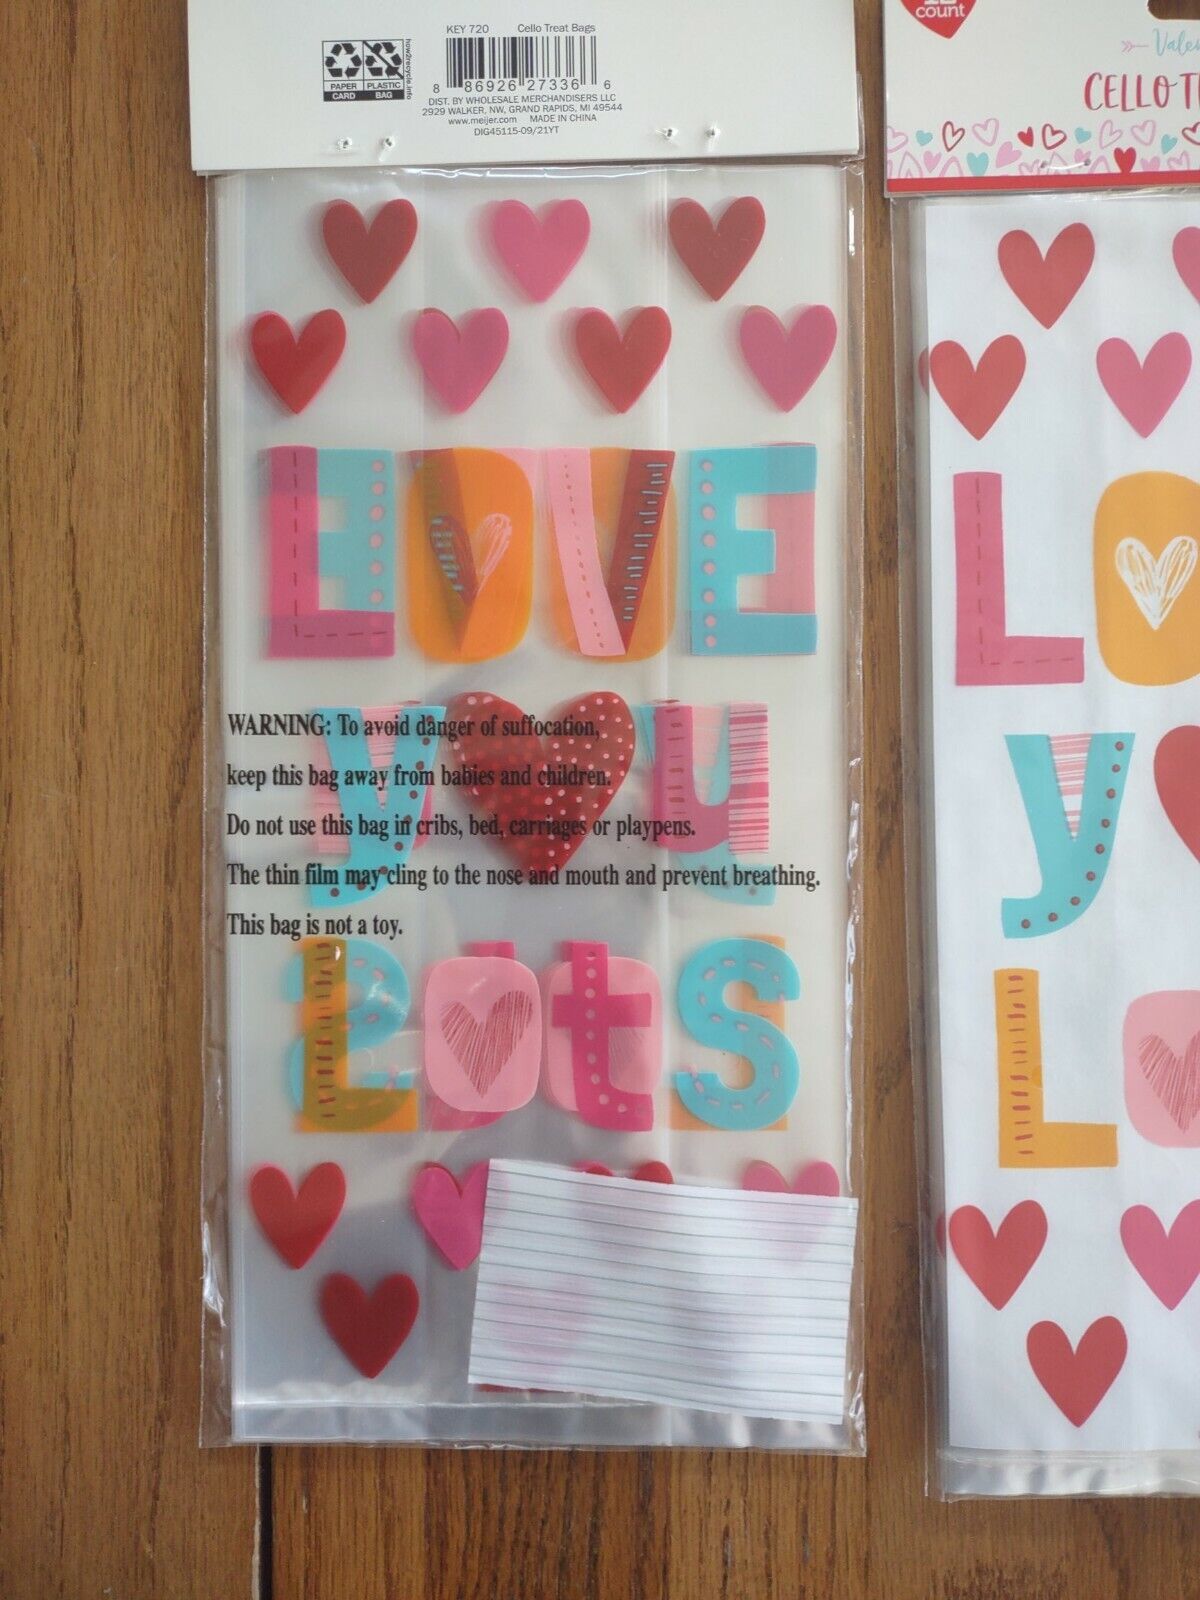 KEY 720 Cello Treat Bags
how2recycle.info
PAPER PLASTIC
CARD BAG
8 86926 27336 6
DIST. BY WHOLESALE MERCHANDISERS LLC
2929 WALKER, NW, GRAND RAPIDS, MI 49544
www.meijer.com MADE IN CHINA
DIG45115-09/21YT
LOVE
WARNING: To avoid danger of suffocation,
keep this bag away from babies and children.
Do not use this bag in cribs, bed, carriages or playpens.
The thin film may cling to the nose and mouth and prevent breathing.
This bag is not a toy.
y u
Lots
12
count
CELLO
LO
y
Lo